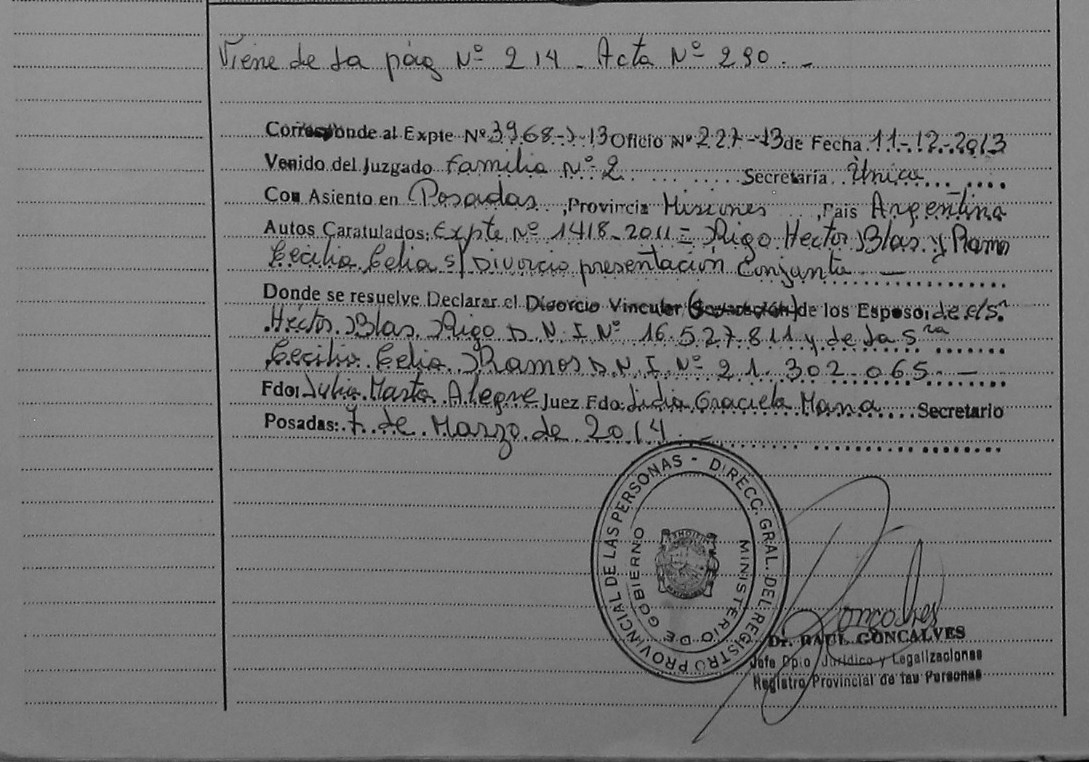 Viene de la pág Nº 214 - Acta Nº 290. -
Corresponde al Expte Nº 3968-J-13 Oficio Nº 227-13 de Fecha 11-12-2013
Venido del Juzgado Familia Nº 2 Secretaría Única
Con Asiento en Posadas, Provincia Misiones, País Argentina
Autos Caratulados: Expte Nº 1418-2011= Rigo Hector Blas y Ramo
Cecilia Celia s/ Divorcio presentación Conjunta -
Donde se resuelve Declarar el Divorcio Vincular de los Esposo: de el Sr
Héctor Blas Rigo D.N.I Nº 16.527.811 y de la Sra
Cecilia Celia Ramos D.N.I. Nº 21.302.065 -
Fdo: Julia Marta Alegre Juez Fdo: Lidia Graciela Secretario
Posadas: 7 de Marzo de 2014 -
DIRECC. GRAL. DEL REGISTRO PROVINCIAL DE LAS PERSONAS -
MINISTERIO DE GOBIERNO
Goncalves
Dr. RAUL GONCALVES
Jefe Dpto Jurídico y Legalizaciones
Registro Provincial de las Personas